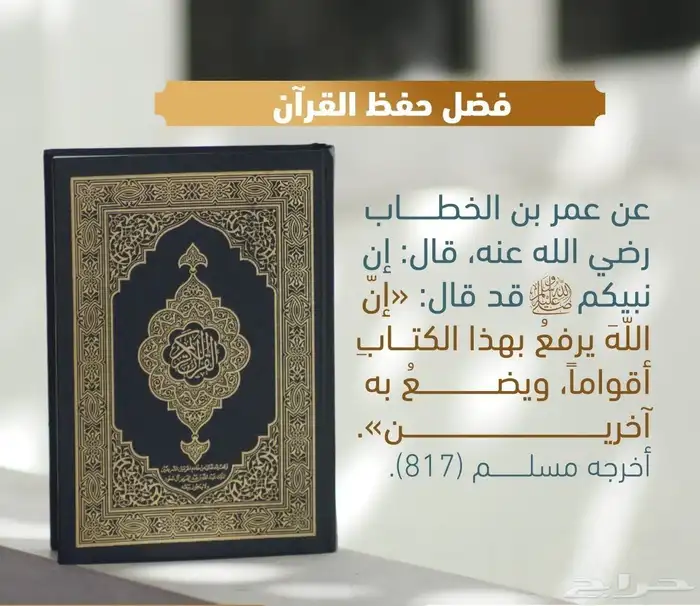 فضل حفظ القرآن
عن عمر بن الخطـــاب
رضي الله عنه، قال: إن
نبيكم ﷺ قد قال: «إنّ
اللّهَ يرفعُ بهذا الكتـابِ
أقواماً، ويضـــــعُ به
آخريـــــــــــــن».
أخرجه مسلـــم (817).
القرآن الكريم
حراج